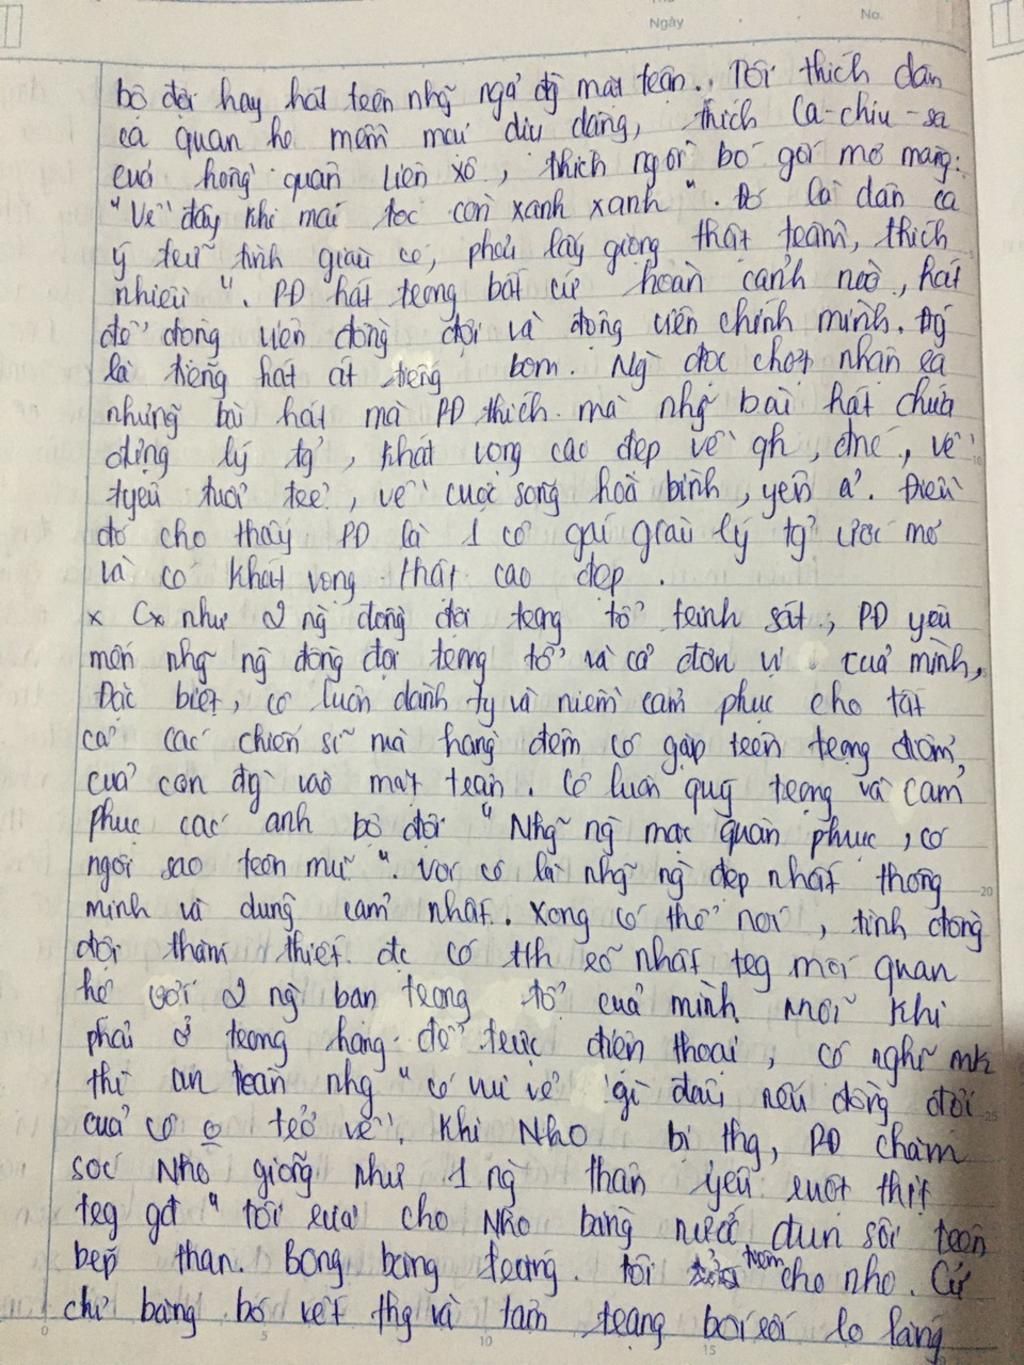 Ngày No.
bộ đội hay hát trên nhg̃ ngả đg̀ mặt trận. Tôi thích dân
ca quan họ mềm mại dịu dàng, thích Ca-chiu-sa
của hồng quân Liên Xô, thích ngồi bó gối mơ màng:
"Về đây khi mái tóc còn xanh xanh". Đó là dân ca
ý trữ tình giàu có, phải lấy giọng thật trầm, thích
nhiều". PĐ hát trong bất cứ hoàn cảnh nào, hát
để động viên đồng đội và động viên chính mình. Đý
là tiếng hát át tiếng bom. Ng̀ đọc chợt nhận ra
những bài hát mà PĐ thích mà nhg̃ bài hát chứa
đựng lý tg̉, khát vọng cao đẹp về qh, đnc, về
tyêu tuổi trẻ, về cuộc sống hoà bình, yên ả. Điều
đó cho thấy PĐ là 1 cô gái giàu lý tg̉ ước mơ
và có khát vọng thật cao đẹp.
x Cx như 2 ng̀ đồng đội trong tổ trinh sát, PĐ yêu
mến nhg̃ ng̀ đồng đội trong tổ và cả đơn vị của mình,
Đặc biệt, cô luôn dành ty và niềm cảm phục cho tất
cả các chiến sĩ mà hàng đêm cô gặp trên trọng điểm
của con đg̀ vào mặt trận. Cô luôn quý trọng và cảm
phục các anh bộ đội "Nhg̃ ng̀ mặc quân phục, có
ngôi sao trên mũ". Với cô là nhg̃ ng̀ đẹp nhất thông
minh và dũng cảm nhất. Xong có thể nói, tình đồng
đội thắm thiết đc cô thh rõ nhất trg mối quan
hệ với 2 ng̀ bạn trong tổ của mình mỗi khi
phải ở trong hang để trực điện thoại, cô nghĩ mk
thì an toàn nhg "có vui vẻ gì đâu nếu đồng đội
của cô o trở về". Khi Nho bị thg, PĐ chăm
sóc Nho giống như 1 ng̀ thân yêu ruột thịt
trg gđ "tôi rửa cho Nho bằng nước đun sôi trên
bếp than. Bông băng trắng. Tôi tiêm cho nho. Cử
chỉ băng bó vết thg và tâm trạng bối rối lo lắng
0 5 10 15
10
20
25